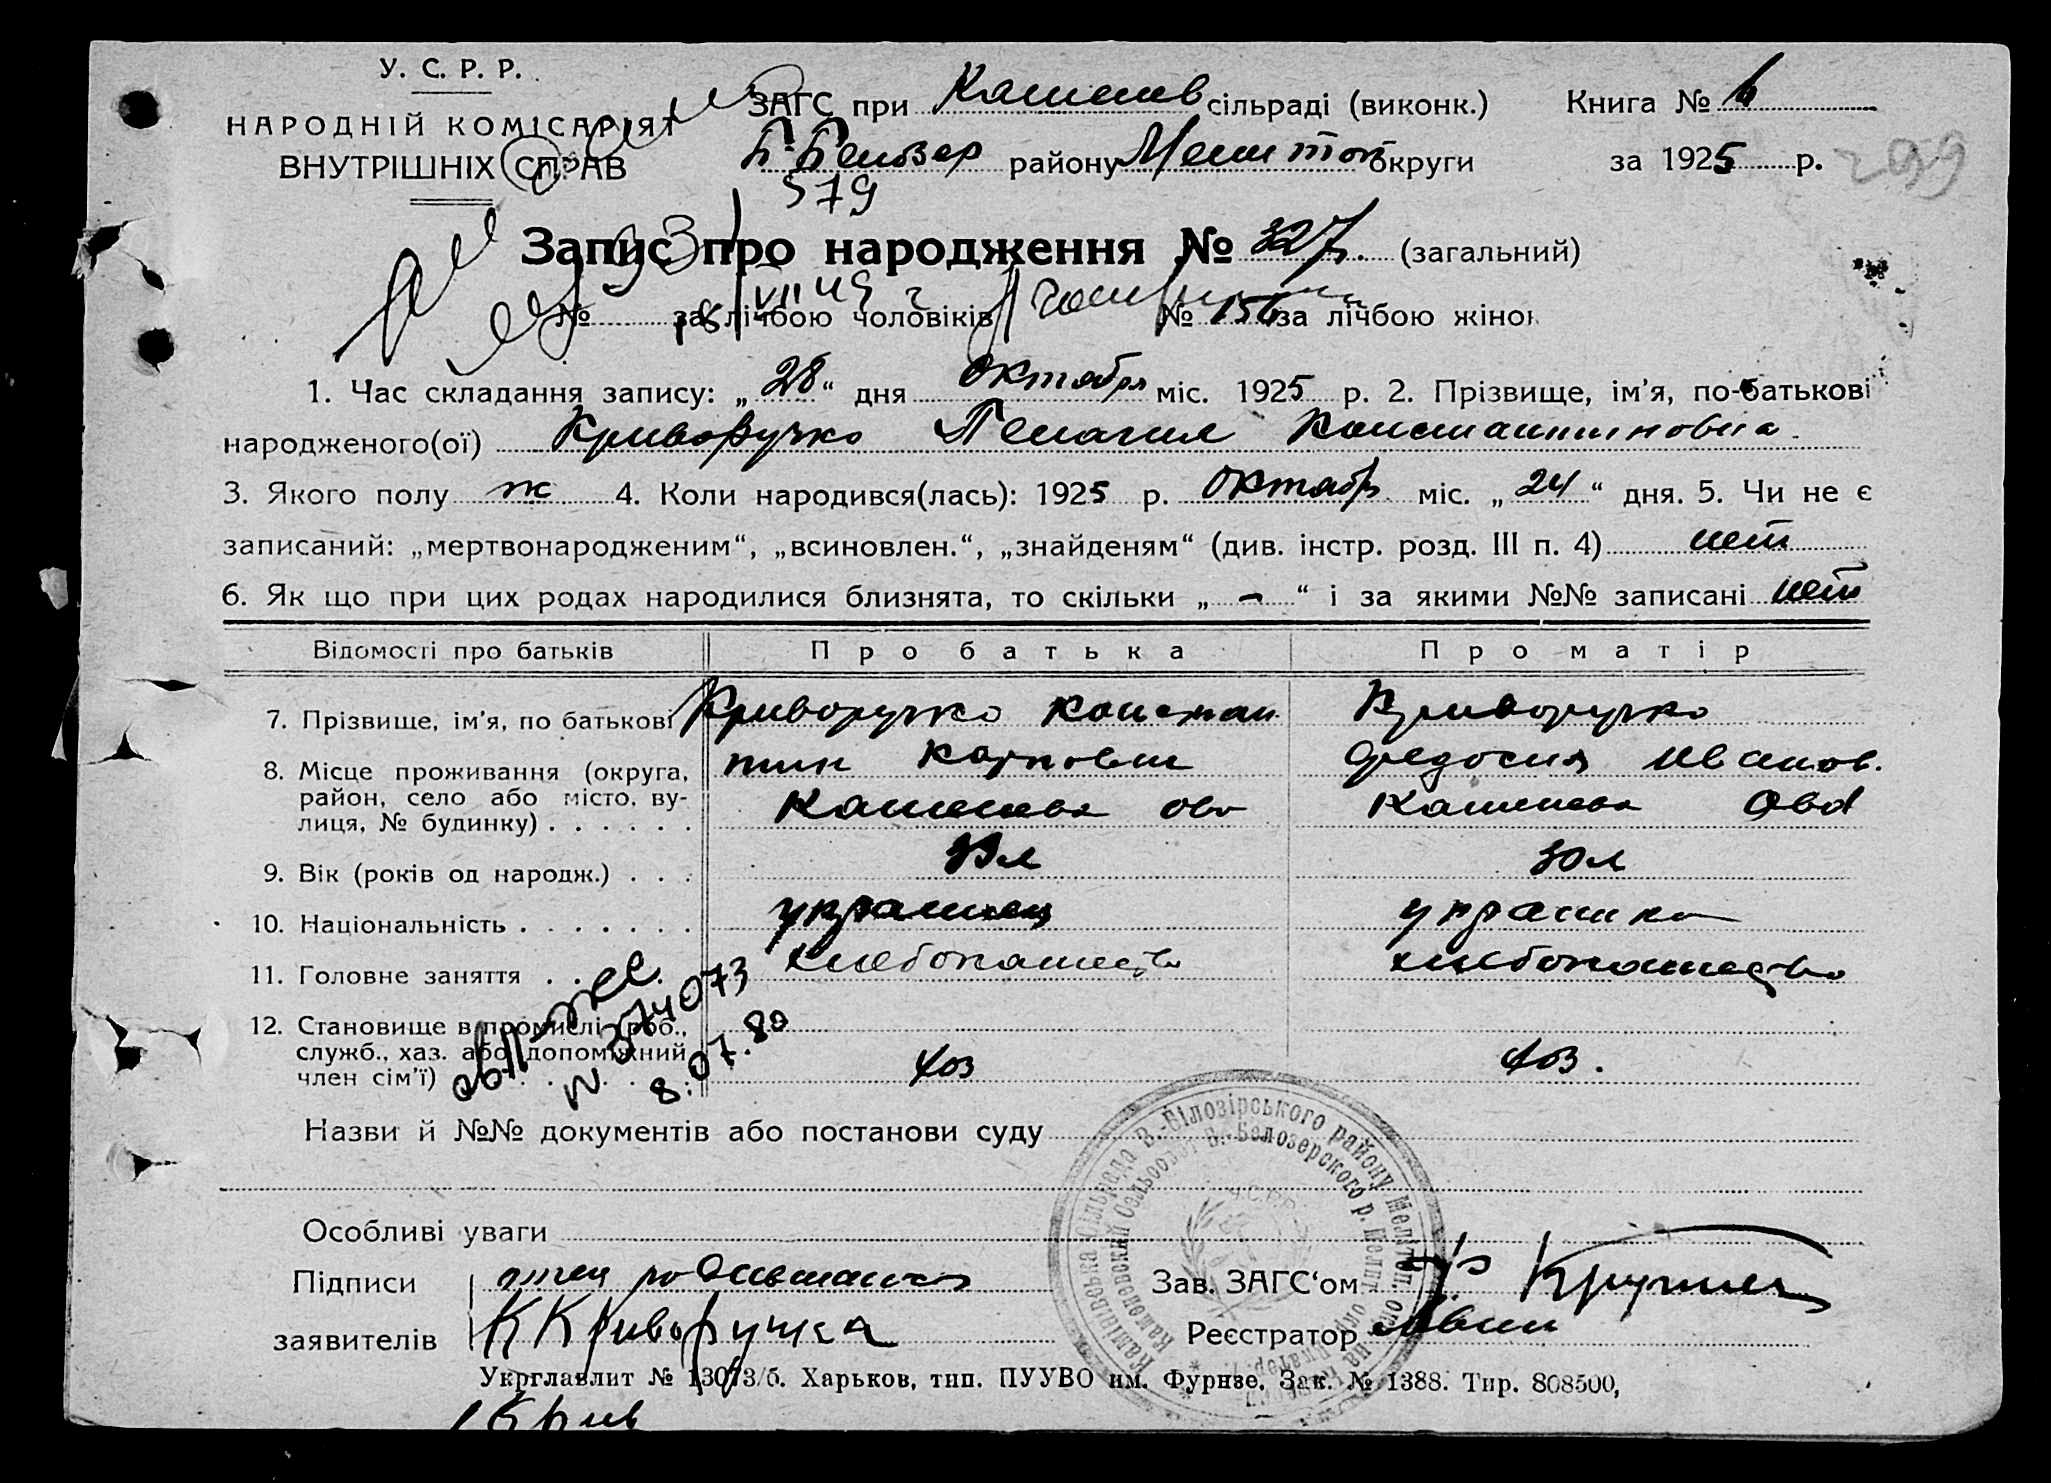 У. С. Р. Р.
НАРОДНІЙ КОМІСАРІЯТ
ВНУТРІШНІХ СПРАВ
ЗАГС при Каменев сільраді (виконк.) Книга №
Б. Белозер району Мелитоп округи за 1925 р. 299
579
Запис про народження № 327. (загальний)
№ за лічбою чоловіків № 156 за лічбою жінок
1. Час складання запису: „28“ дня Октября міс. 1925 р. 2. Прізвище, ім’я, по-батькові
народженого(ої) Криворучко Пелагия Константиновна
3. Якого полу ж 4. Коли народився(лась): 1925 р. Октябр міс. „24“ дня. 5. Чи не є
записаний: „мертвонародженим“, „всиновлен.“, „знайденям“ (див. інстр. розд. III п. 4) нет
6. Як що при цих родах народилися близнята, то скільки „-“ і за якими №№ записані нет
Відомості про батьків Про батька Про матір
7. Прізвище, ім’я, по батькові Криворучко Констан Криворучко
тин Карпович Федосия Иванов.
8. Місце проживання (округа,
район, село або місто, ву-
лиця, № будинку) Каменева Каменева
9. Вік (років од народж.) 30 л
10. Національність украинец украинка
11. Головне заняття хлебопашество хлебопашество
12. Становище в промислі (роб.,
служб., хаз. або допоміжний
член сім’ї) хоз хоз.
№ 374073
8.07.80
Назви й №№ документів або постанови суду
Особливі уваги
Підписи отец родившагося Зав. ЗАГС‘ом
заявителів К Криворучка Реєстратор
Укрглавлит № 13073/б. Харьков, тип. ПУУВО им. Фрунзе. Зак. № 1388. Тир. 808500,
К Крив
Кам
В.-Білозірського району Меліт
Каменевский сельсовет Б.-Белозерского р. Мелит
У.С.Р.Р.